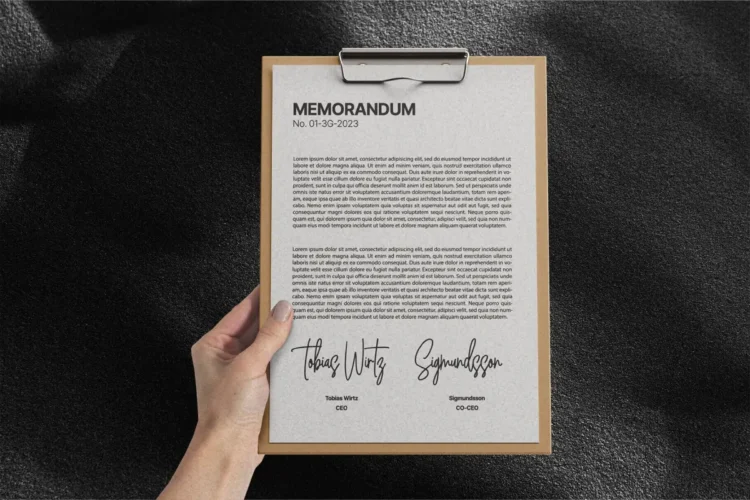 MEMORANDUM
No. 01-3G-2023
Lorem ipsum dolor sit amet, consectetur adipiscing elit, sed do eiusmod tempor incididunt ut
labore et dolore magna aliqua. Ut enim ad minim veniam, quis nostrud exercitation ullamco
laboris nisi ut aliquip ex ea commodo consequat. Duis aute irure dolor in reprehenderit in vo-
luptate velit esse cillum dolore eu fugiat nulla pariatur. Excepteur sint occaecat cupidatat non
proident, sunt in culpa qui officia deserunt mollit anim id est laborum. Sed ut perspiciatis unde
omnis iste natus error sit voluptatem accusantium doloremque laudantium, totam rem aperi-
am, eaque ipsa quae ab illo inventore veritatis et quasi architecto beatae vitae dicta sunt expli-
cabo. Nemo enim ipsam voluptatem quia voluptas sit aspernatur aut odit aut fugit, sed quia
consequuntur magni dolores eos qui ratione voluptatem sequi nesciunt. Neque porro quis-
quam est, qui dolorem ipsum quia dolor sit amet, consectetur, adipisci velit, sed quia non num-
quam eius modi tempora incidunt ut labore et dolore magnam aliquam quaerat voluptatem.
Lorem ipsum dolor sit amet, consectetur adipiscing elit, sed do eiusmod tempor incididunt ut
labore et dolore magna aliqua. Ut enim ad minim veniam, quis nostrud exercitation ullamco
laboris nisi ut aliquip ex ea commodo consequat. Duis aute irure dolor in reprehenderit in vo-
luptate velit esse cillum dolore eu fugiat nulla pariatur. Excepteur sint occaecat cupidatat non
proident, sunt in culpa qui officia deserunt mollit anim id est laborum. Sed ut perspiciatis unde
omnis iste natus error sit voluptatem accusantium doloremque laudantium, totam rem aperi-
am, eaque ipsa quae ab illo inventore veritatis et quasi architecto beatae vitae dicta sunt expli-
cabo. Nemo enim ipsam voluptatem quia voluptas sit aspernatur aut odit aut fugit, sed quia
consequuntur magni dolores eos qui ratione voluptatem sequi nesciunt. Neque porro quis-
quam est, qui dolorem ipsum quia dolor sit amet, consectetur, adipisci velit, sed quia non num-
quam eius modi tempora incidunt ut labore et dolore magnam aliquam quaerat voluptatem.
Tobias Wirtz Sigmundsson
Tobias Wirtz Sigmundsson
CEO CO-CEO